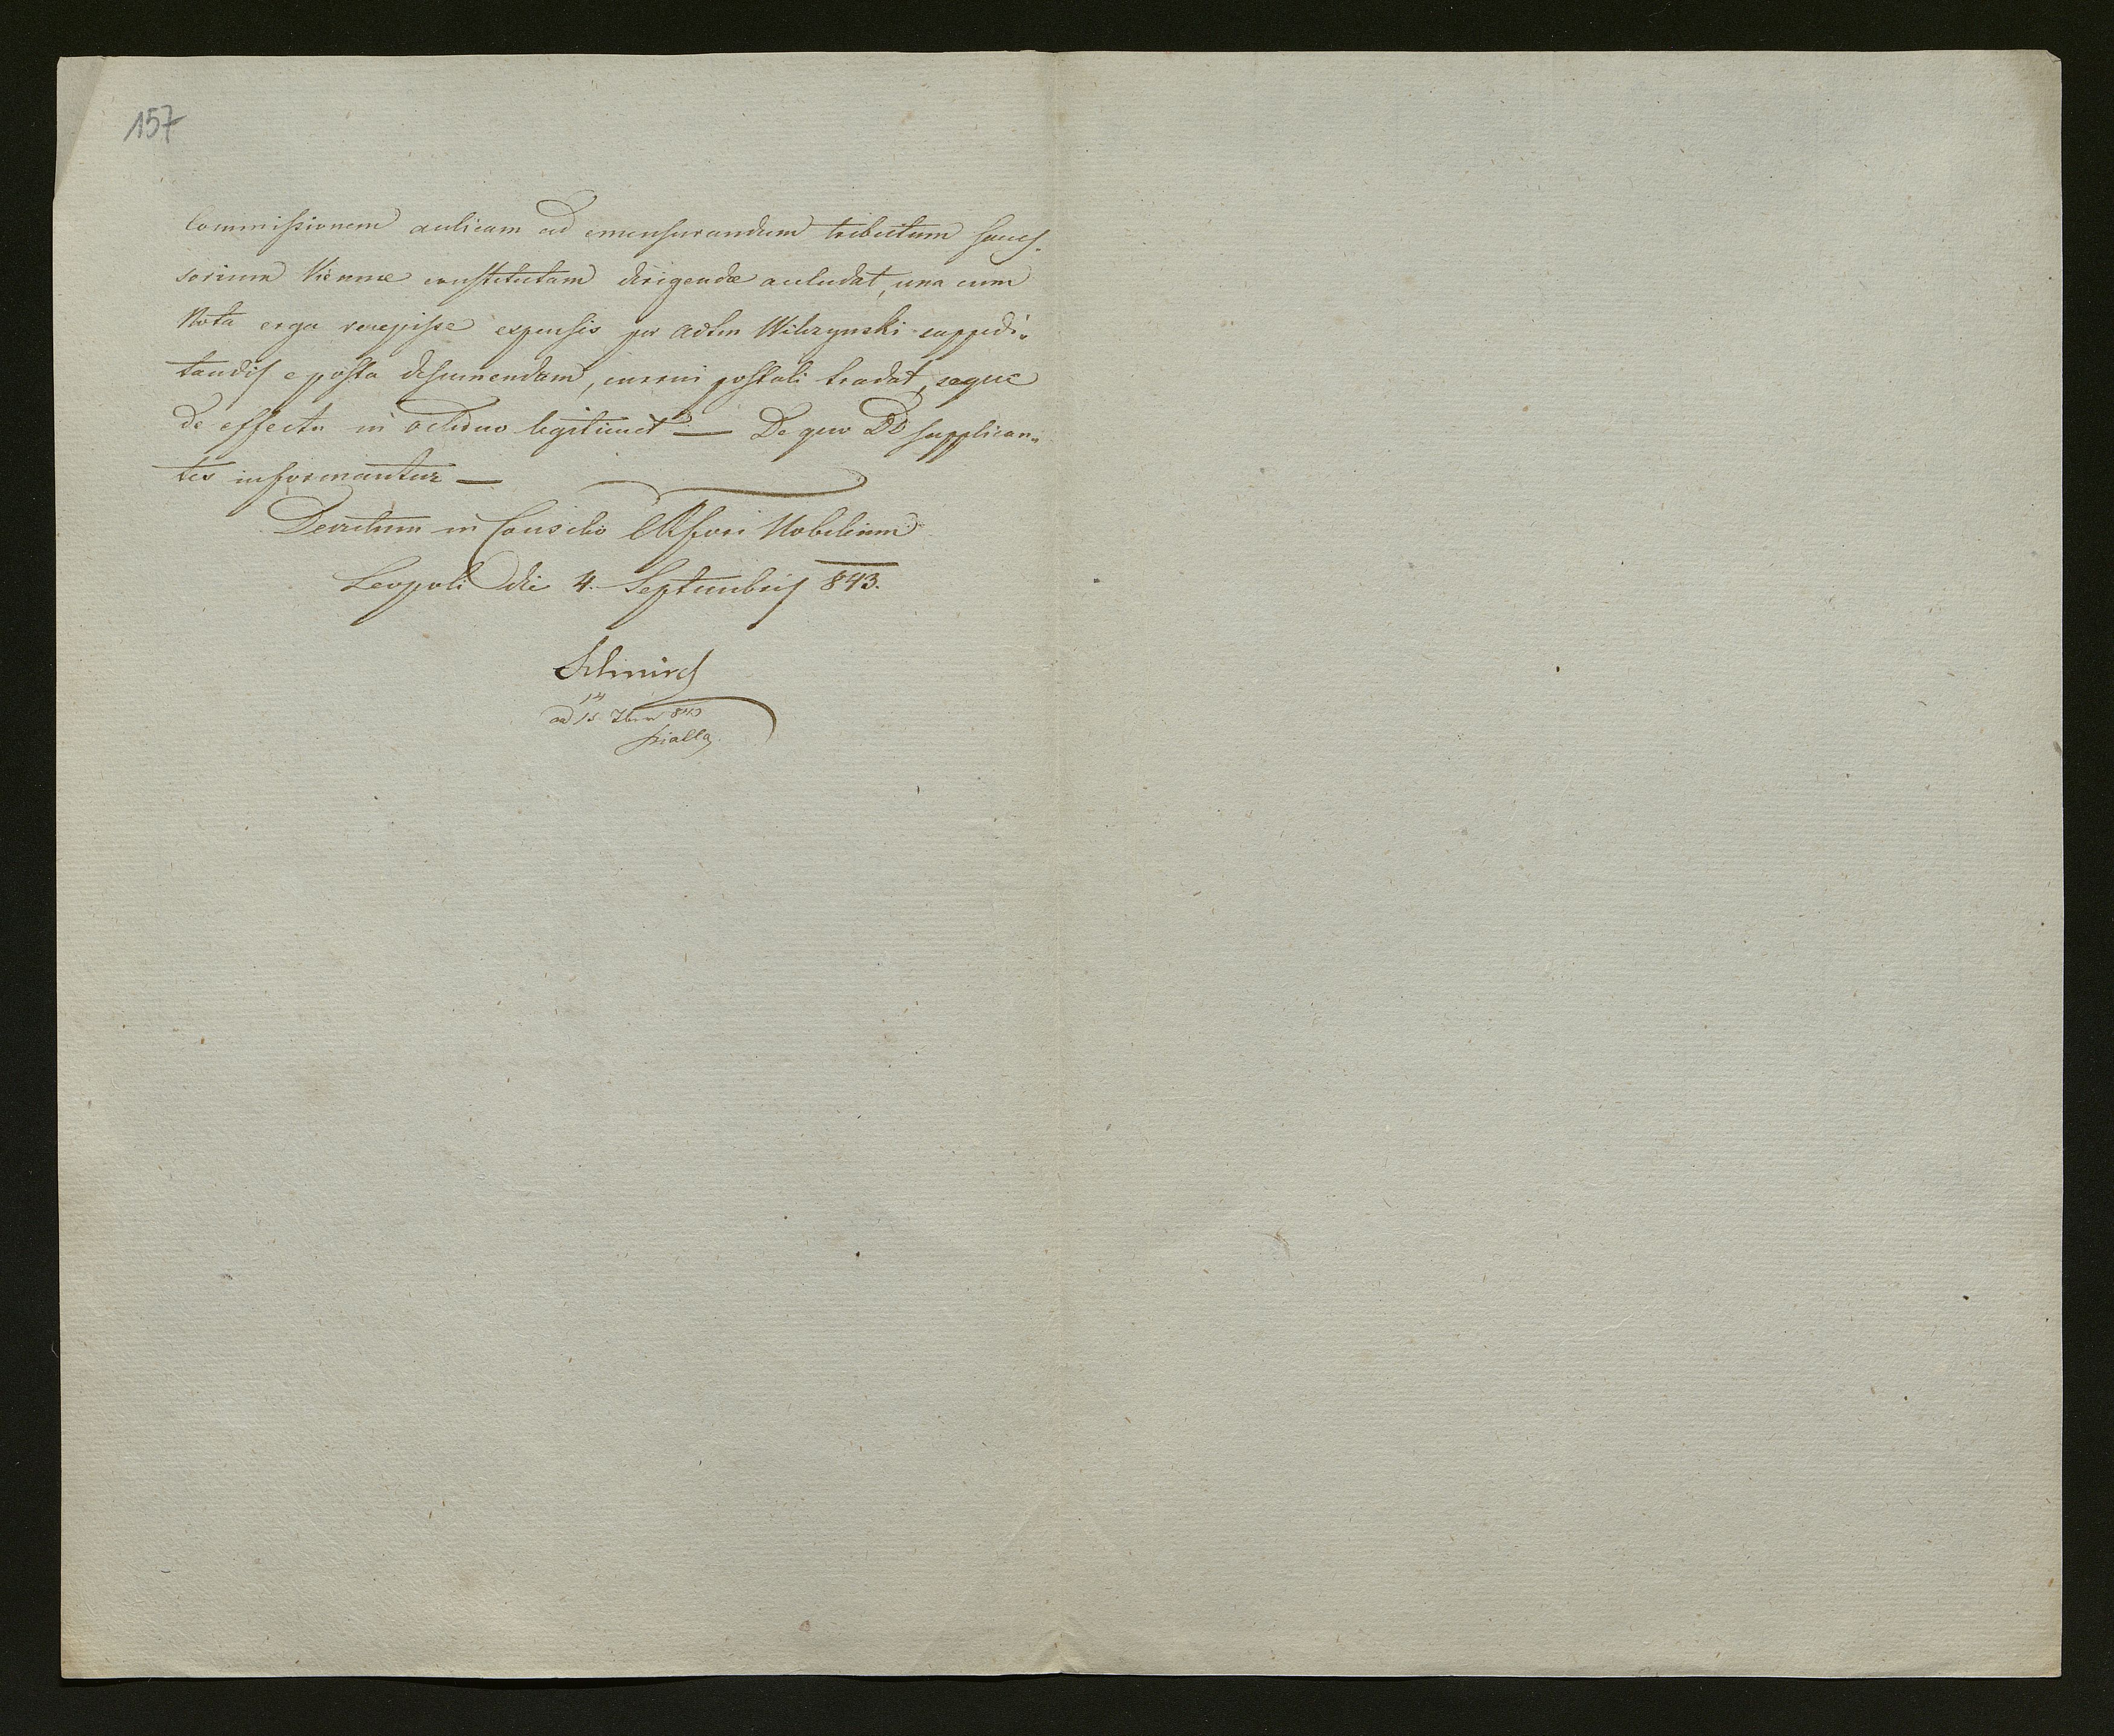 157
Commissionem aulicam ad emensurandum tributum succes-
sorium Viennae constitutam dirigendae acludat, una cum
Nota erga recepisse expensis per Adtm Wilczynski suppedi-
tandis e posta desumendam, cursui postali tradat, seque
de effectu in octiduo legitimet — De quo DD supplican-
tes informantur —
Decretum in Consilio CR fori Nobilium
Leopoli die 4. Septembris 843.
14
ad 15 7br 843